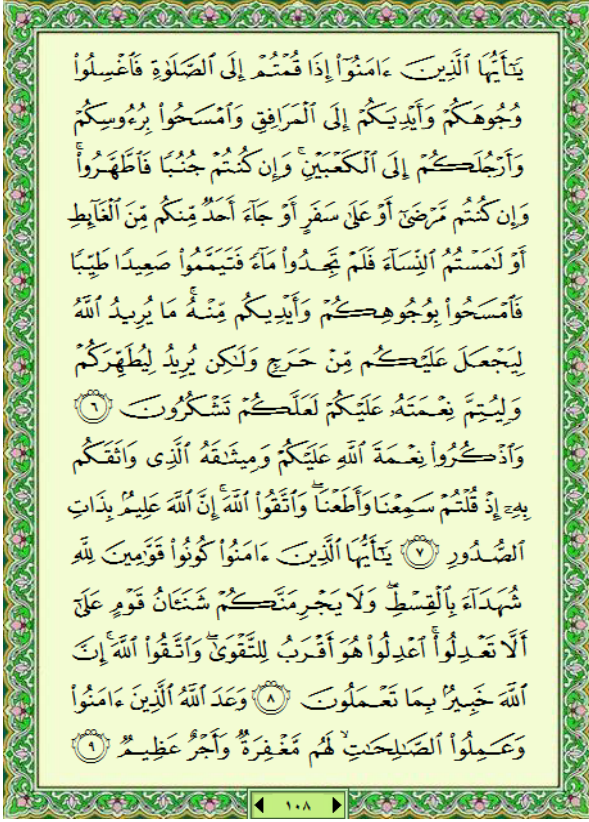 يَٰٓأَيُّهَا ٱلَّذِينَ ءَامَنُوٓا۟ إِذَا قُمْتُمْ إِلَى ٱلصَّلَوٰةِ فَٱغْسِلُوا۟
وُجُوهَكُمْ وَأَيْدِيَكُمْ إِلَى ٱلْمَرَافِقِ وَٱمْسَحُوا۟ بِرُءُوسِكُمْ
وَأَرْجُلَكُمْ إِلَى ٱلْكَعْبَيْنِ ۚ وَإِن كُنتُمْ جُنُبًا فَٱطَّهَّرُوا۟ ۚ
وَإِن كُنتُم مَّرْضَىٰٓ أَوْ عَلَىٰ سَفَرٍ أَوْ جَآءَ أَحَدٌ مِّنكُم مِّنَ ٱلْغَآئِطِ
أَوْ لَٰمَسْتُمُ ٱلنِّسَآءَ فَلَمْ تَجِدُوا۟ مَآءً فَتَيَمَّمُوا۟ صَعِيدًا طَيِّبًا
فَٱمْسَحُوا۟ بِوُجُوهِكُمْ وَأَيْدِيكُم مِّنْهُ ۚ مَا يُرِيدُ ٱللَّهُ
لِيَجْعَلَ عَلَيْكُم مِّنْ حَرَجٍ وَلَٰكِن يُرِيدُ لِيُطَهِّرَكُمْ
وَلِيُتِمَّ نِعْمَتَهُۥ عَلَيْكُمْ لَعَلَّكُمْ تَشْكُرُونَ ٦
وَٱذْكُرُوا۟ نِعْمَةَ ٱللَّهِ عَلَيْكُمْ وَمِيثَٰقَهُ ٱلَّذِى وَاثَقَكُم
بِهِۦٓ إِذْ قُلْتُمْ سَمِعْنَا وَأَطَعْنَا ۖ وَٱتَّقُوا۟ ٱللَّهَ ۚ إِنَّ ٱللَّهَ عَلِيمٌۢ بِذَاتِ
ٱلصُّدُورِ ٧ يَٰٓأَيُّهَا ٱلَّذِينَ ءَامَنُوا۟ كُونُوا۟ قَوَّٰمِينَ لِلَّهِ
شُهَدَآءَ بِٱلْقِسْطِ ۖ وَلَا يَجْرِمَنَّكُمْ شَنَـَٔانُ قَوْمٍ عَلَىٰٓ
أَلَّا تَعْدِلُوا۟ ۚ ٱعْدِلُوا۟ هُوَ أَقْرَبُ لِلتَّقْوَىٰ ۖ وَٱتَّقُوا۟ ٱللَّهَ ۚ إِنَّ
ٱللَّهَ خَبِيرٌۢ بِمَا تَعْمَلُونَ ٨ وَعَدَ ٱللَّهُ ٱلَّذِينَ ءَامَنُوا۟
وَعَمِلُوا۟ ٱلصَّٰلِحَٰتِ ۙ لَهُم مَّغْفِرَةٌ وَأَجْرٌ عَظِيمٌ ٩
١٠٨